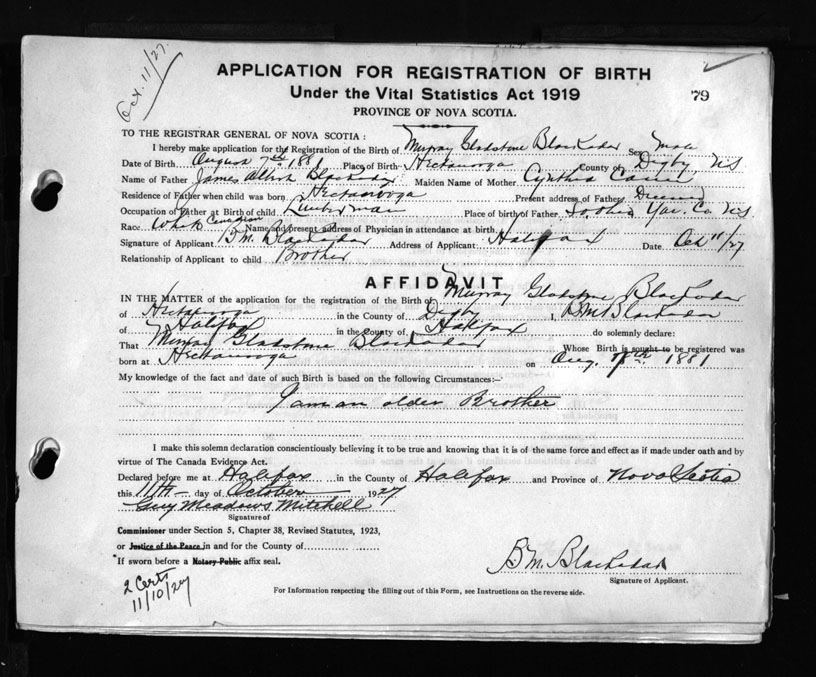 Oct. 11/27.
APPLICATION FOR REGISTRATION OF BIRTH
Under the Vital Statistics Act 1919
79
PROVINCE OF NOVA SCOTIA.
TO THE REGISTRAR GENERAL OF NOVA SCOTIA :
I hereby make application for the Registration of the Birth of Murray Gladstone Blackadar Sex Male
Date of Birth August 7th 1881 Place of Birth Hectanooga County of Digby, NS
Name of Father James Albert Blackadar Maiden Name of Mother Cynthia
Residence of Father when child was born Hectanooga Present address of Father Deceased
Occupation of Father at Birth of child Lumberman Place of birth of Father Yar. Co. NS
Race White Canadian Name and present address of Physician in attendance at birth
Signature of Applicant B.M. Blackadar Address of Applicant Halifax Date Oct 11/27
Relationship of Applicant to child Brother
AFFIDAVIT
IN THE MATTER of the application for the registration of the Birth of Murray Gladstone Blackadar
of Hectanooga in the County of Digby I, B M Blackadar
of Halifax in the County of Halifax do solemnly declare:
That Murray Gladstone Blackadar Whose Birth is sought to be registered was
born at Hectanooga on Aug. 7th 1881
My knowledge of the fact and date of such Birth is based on the following Circumstances:—
I am an older Brother
I make this solemn declaration conscientiously believing it to be true and knowing that it is of the same force and effect as if made under oath and by
virtue of The Canada Evidence Act.
Declared before me at Halifax in the County of Halifax and Province of Nova Scotia
this 11th day of October 1927
Guy Meadows Mitchell
Signature of
Commissioner under Section 5, Chapter 38, Revised Statutes, 1923,
or Justice of the Peace in and for the County of
*If sworn before a Notary Public affix seal.
B M. Blackadar
Signature of Applicant.
2 Certs
11/10/27
For Information respecting the filling out of this Form, see Instructions on the reverse side.